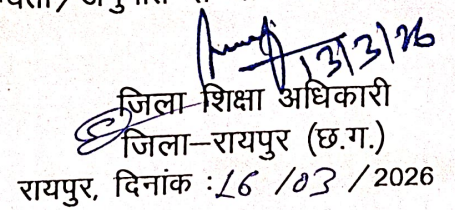 13/3/26
जिला शिक्षा अधिकारी
जिला–रायपुर (छ.ग.)
रायपुर, दिनांक : 16 /03 / 2026